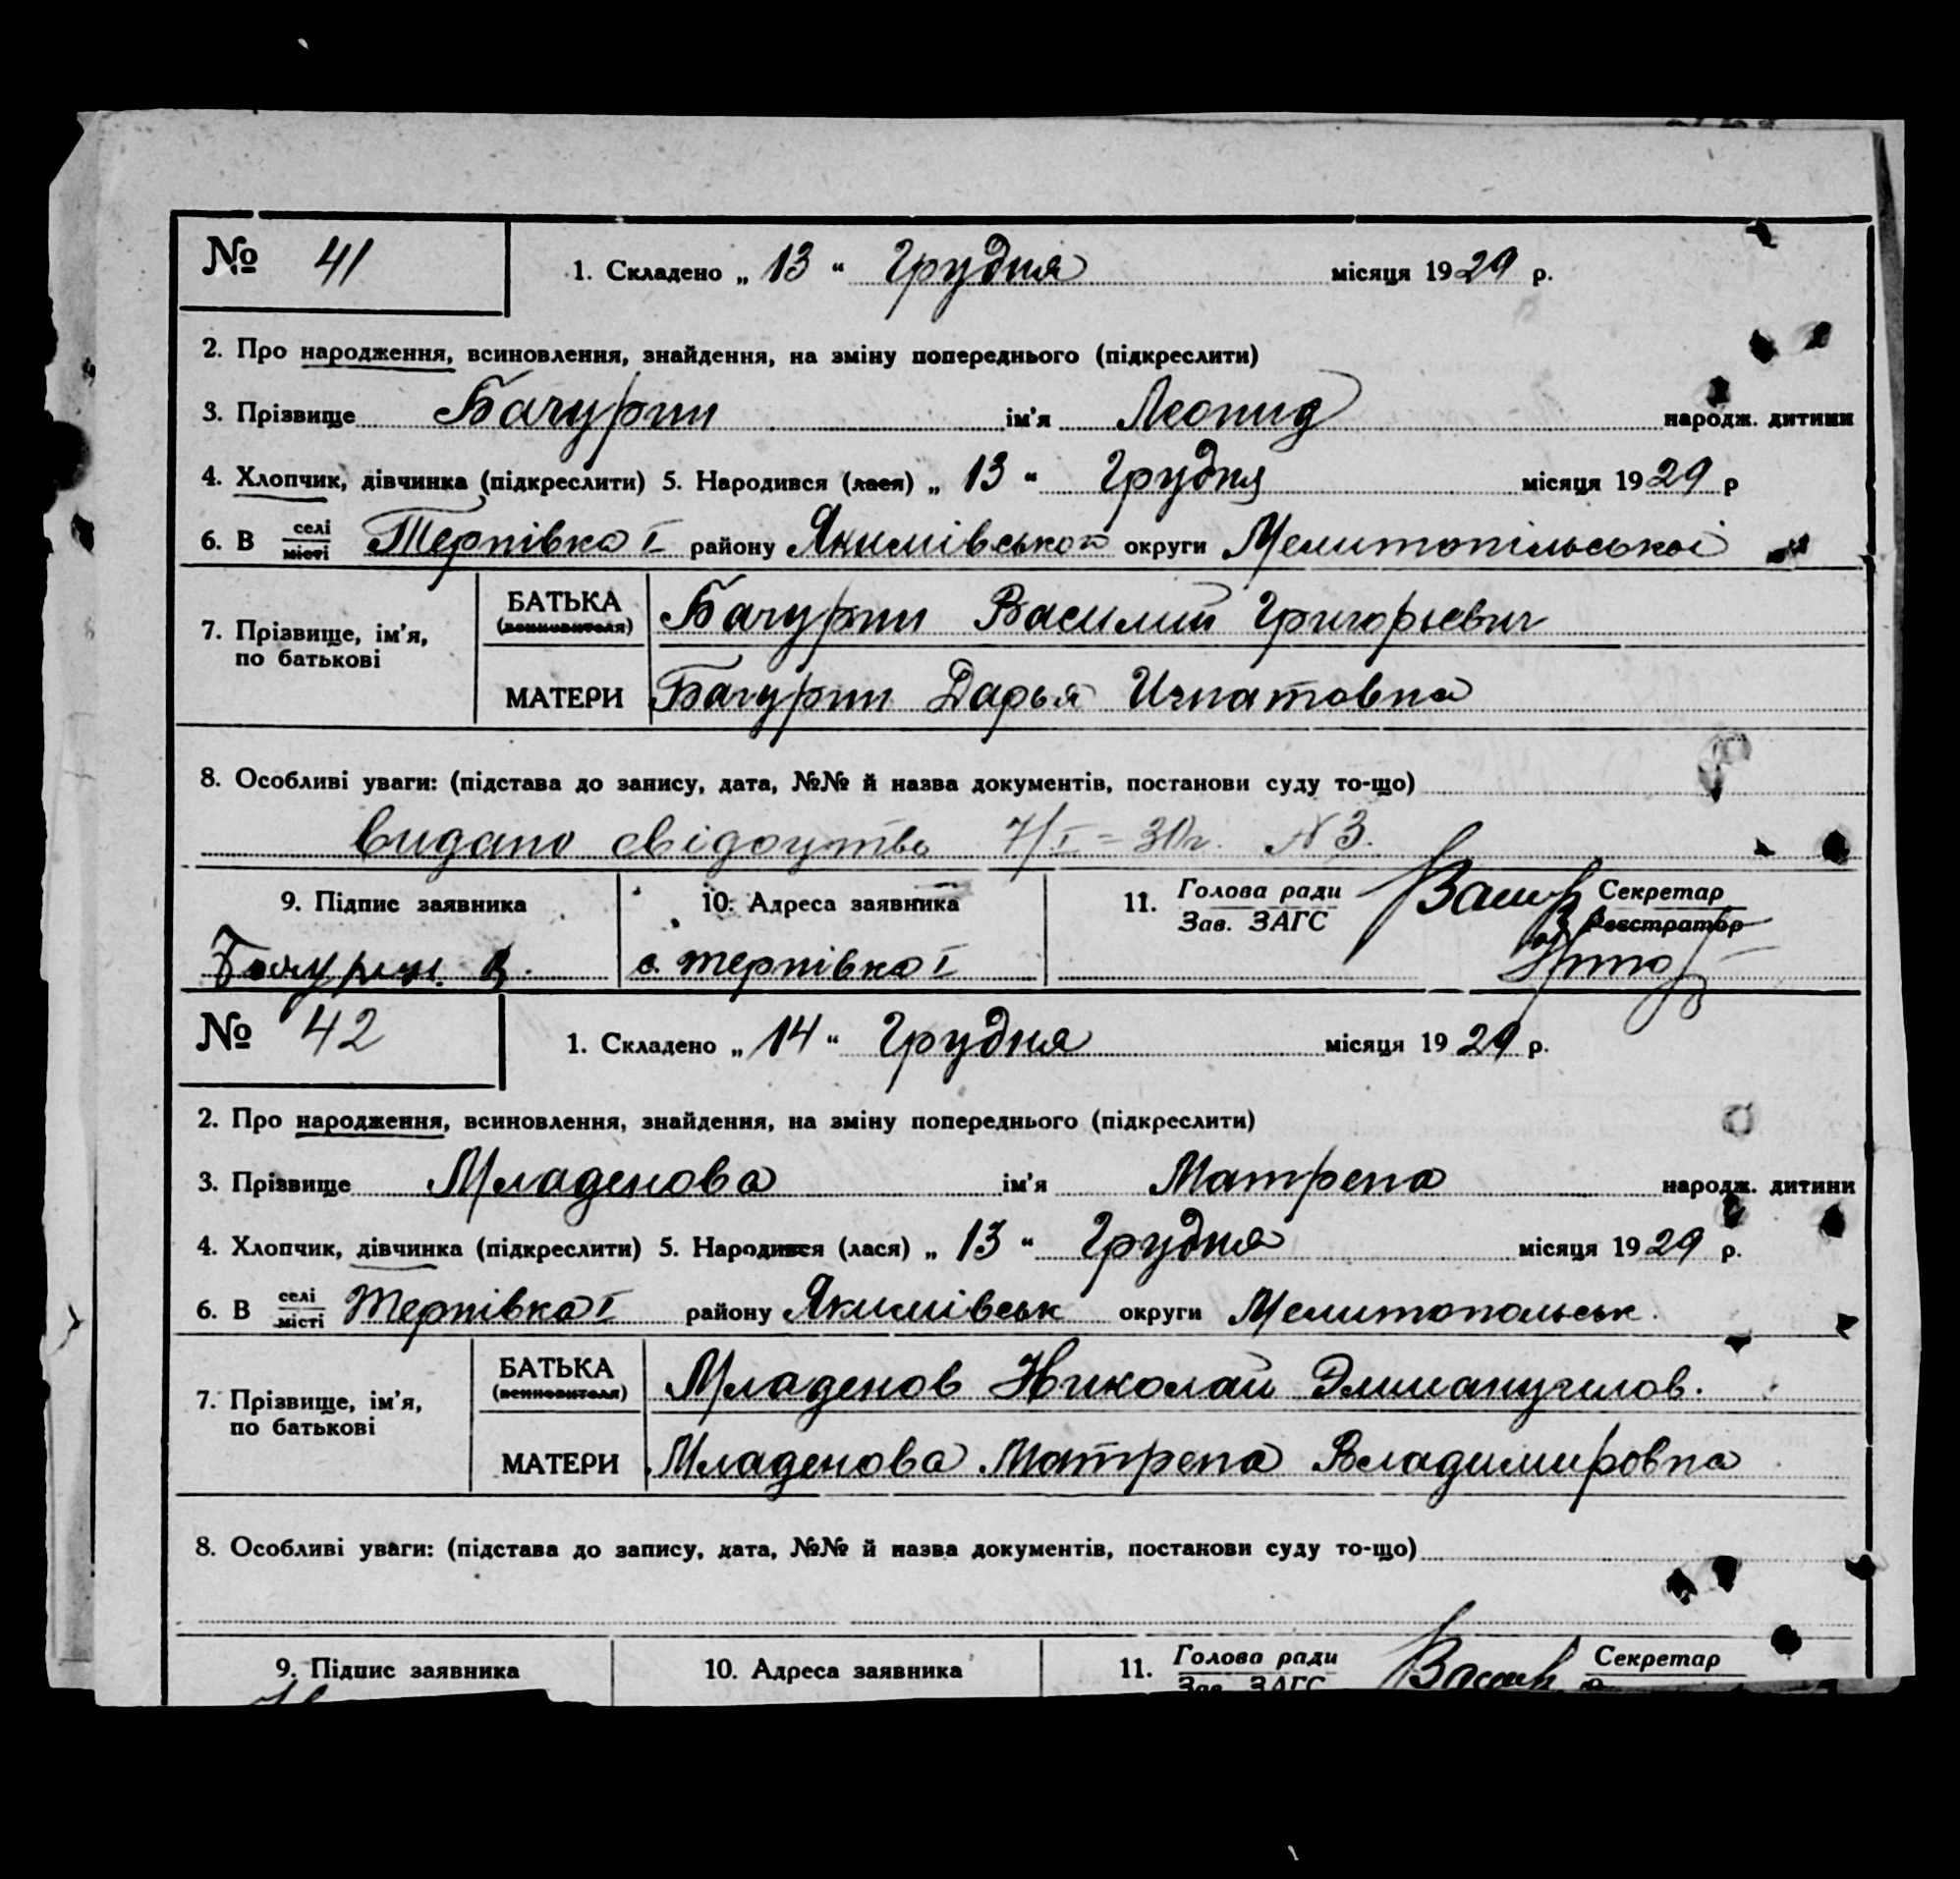 № 41 1. Складено „ 13 “ Грудня місяця 1929 р.
2. Про народження, всиновлення, знайдення, на зміну попереднього (підкреслити)
3. Прізвище Бачурин ім'я Леонид народж. дитини
4. Хлопчик, дівчинка (підкреслити) 5. Народився (лася) „ 13 “ Грудня місяця 1929 р
6. В селі місті Терпівка I району Якимівської округи Мелитопільської
7. Прізвище, ім'я, по батькові БАТЬКА (всиновителя) Бачурин Василий Григорьевич
МАТЕРИ Бачурин Дарья Игнатовна
8. Особливі уваги: (підстава до запису, дата, №№ й назва документів, постанови суду то-що)
Видано свідоцтво 7/I=30г. N 3.
9. Підпис заявника 10. Адреса заявника 11. Голова ради Зав. ЗАГС Секретар Реєстратор
Бачурин В. с. Терпівка I
№ 42 1. Складено „ 14 “ Грудня місяця 1929 р.
2. Про народження, всиновлення, знайдення, на зміну попереднього (підкреслити)
3. Прізвище Младенова ім'я Матрена народж. дитини
4. Хлопчик, дівчинка (підкреслити) 5. Народився (лася) „ 13 “ Грудня місяця 1929 р.
6. В селі місті Терпівка I району Якимівськ округи Мелитопольськ.
7. Прізвище, ім'я, по батькові БАТЬКА (всиновителя) Младенов Николай
МАТЕРИ Младенова Матрена Владимировна
8. Особливі уваги: (підстава до запису, дата, №№ й назва документів, постанови суду то-що)
9. Підпис заявника 10. Адреса заявника 11. Голова ради Зав. ЗАГС Секретар